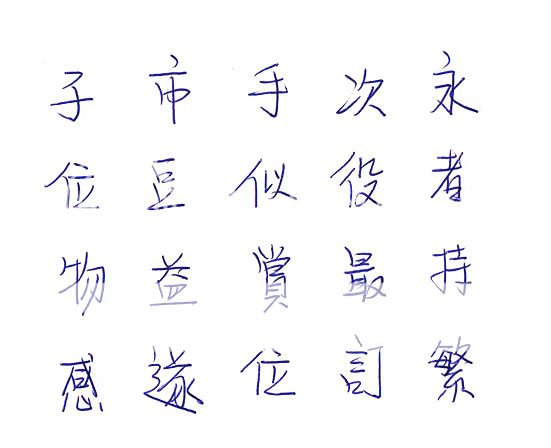 子市手次永
位豆似役者
物益賞最持
感遂位訂繁